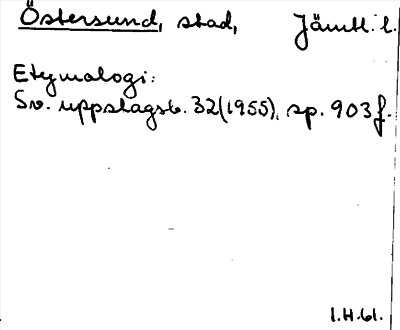 Östersund, stad, Jämtl. l.
Etymologi:
Sv. uppslagsb. 32(1955), sp. 903 f.
I.H.61.